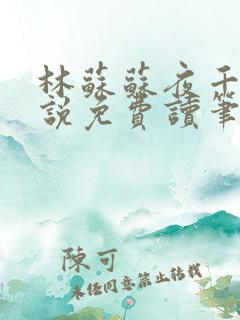 林蘇蘇夜千
說免費讀筆
陳可
未經同意禁止轉載